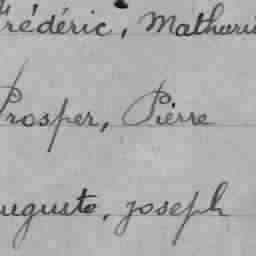 Frédéric, Mathurin
Prosper, Pierre
Auguste, joseph